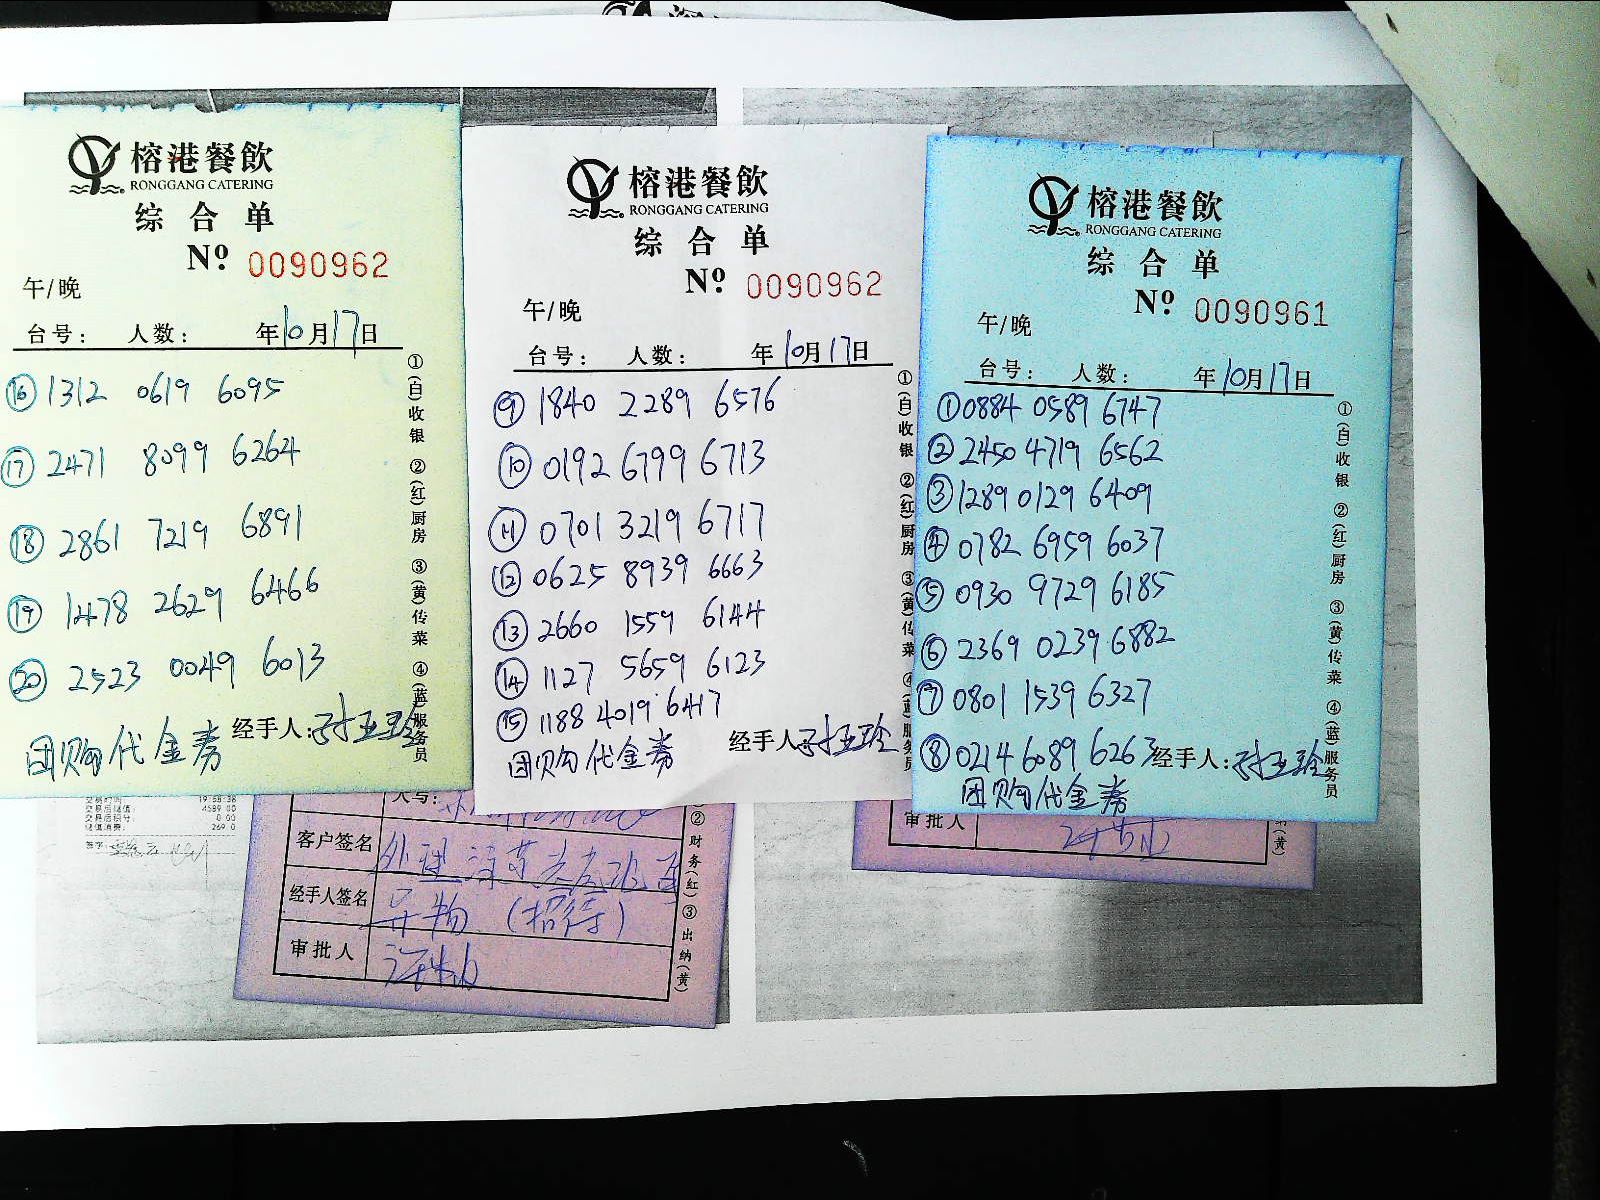 榕港餐飲
RONGGANG CATERING
综合单
Nº 0090962
午/晚
台号： 人数： 年10月17日
⑯ 1312 0619 6095
⑰ 2471 8099 6264
⑱ 2861 7219 6891
⑲ 1478 2629 6466
⑳ 2523 0049 6013
经手人：
团购代金券
①(白)收银 ②(红)厨房 ③(黄)传菜 ④(蓝)服务员
榕港餐飲
RONGGANG CATERING
综合单
Nº 0090962
午/晚
台号： 人数： 年10月17日
⑨ 1840 2289 6576
⑩ 0192 6799 6713
⑪ 0701 3219 6717
⑫ 0625 8939 6663
⑬ 2660 1559 6144
⑭ 1127 5659 6123
⑮ 1188 4019 6417
经手人
团购代金券
①(白)收银 ②(红)厨房 ③(黄)传菜 ④(蓝)服务员
榕港餐飲
RONGGANG CATERING
综合单
Nº 0090961
午/晚
台号： 人数： 年10月17日
① 0884 0589 6747
② 2450 4719 6562
③ 1289 0129 6409
④ 0782 6959 6037
⑤ 0930 9729 6185
⑥ 2369 0239 6882
⑦ 0801 1539 6327
⑧ 0214 6089 6263
经手人：
团购代金券
①(白)收银 ②(红)厨房 ③(黄)传菜 ④(蓝)服务员
交易时间： 19:58:38
交易后储值： 4589.00
交易后积分： 0.00
储值消费： 269.0
签字：
大写：
客户签名
经手人签名 (招待)
审批人
②财务(红)③出纳(黄)
审批人
(黄)